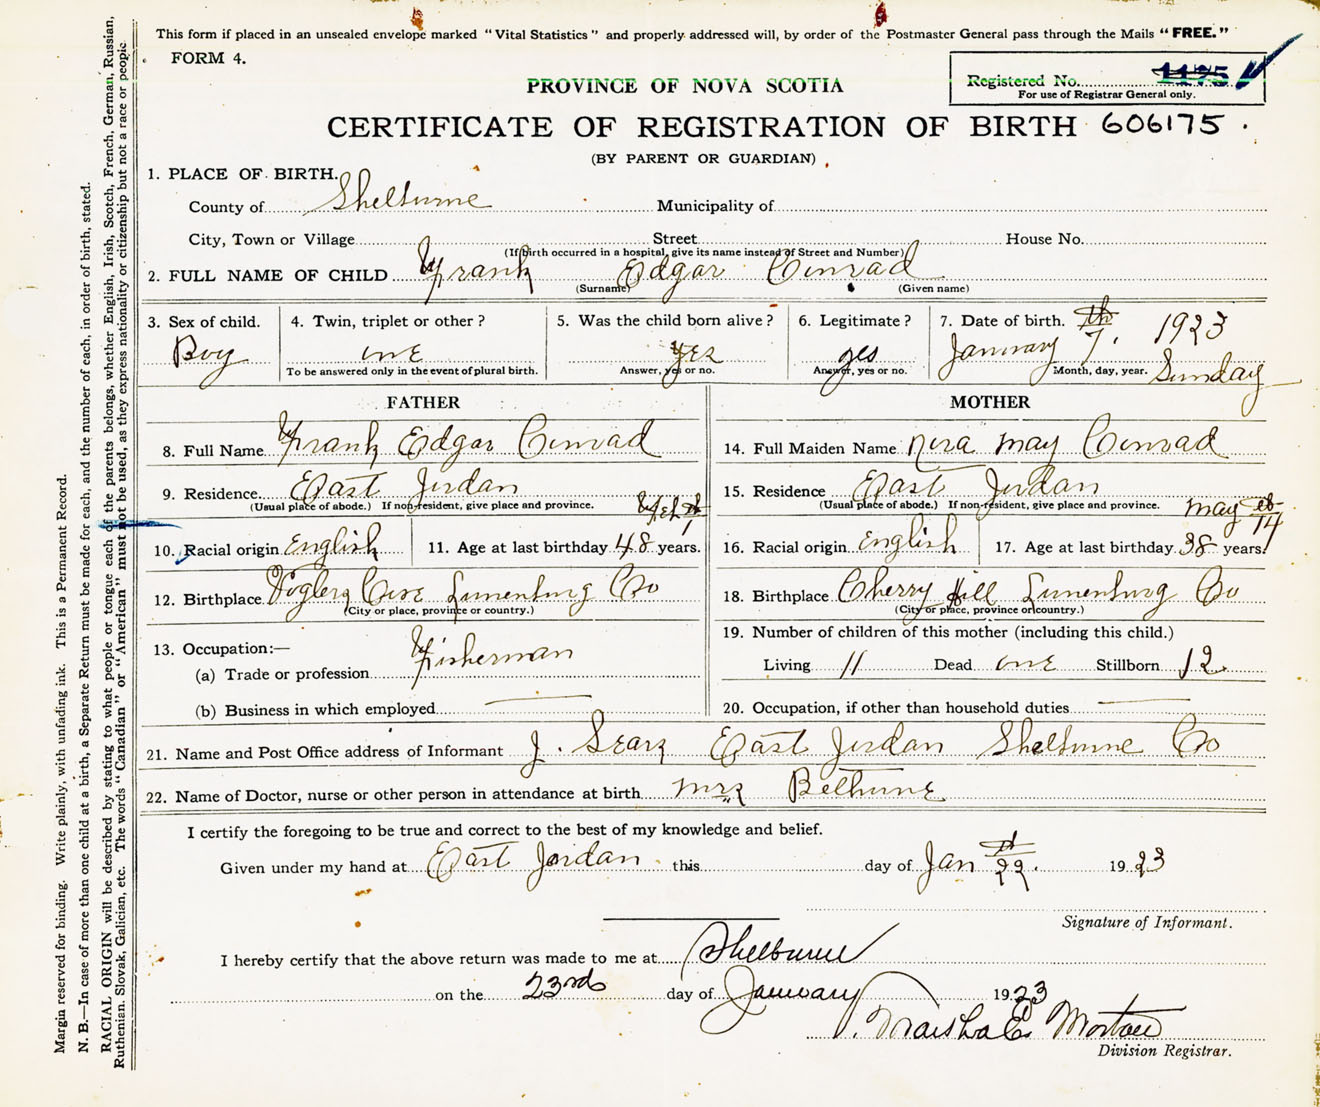 This form if placed in an unsealed envelope marked "Vital Statistics" and properly addressed will, by order of the Postmaster General pass through the Mails "FREE."
FORM 4.
Registered No. 1495
For use of Registrar General only.
PROVINCE OF NOVA SCOTIA
CERTIFICATE OF REGISTRATION OF BIRTH 606175.
(BY PARENT OR GUARDIAN)
1. PLACE OF BIRTH.
County of Shelburne Municipality of
City, Town or Village Street House No.
(If birth occurred in a hospital, give its name instead of Street and Number)
2. FULL NAME OF CHILD Frank Edgar Conrad
(Surname) (Given name)
3. Sex of child. 4. Twin, triplet or other? 5. Was the child born alive? 6. Legitimate? 7. Date of birth. th 1923
Boy one yes yes January 7.
To be answered only in the event of plural birth. Answer, yes or no. Answer, yes or no. Month, day, year. Sunday
FATHER
8. Full Name Frank Edgar Conrad
9. Residence East Jordan
(Usual place of abode.) If non-resident, give place and province.
10. Racial origin English 11. Age at last birthday 48 years.
12. Birthplace Voglers Cove Lunenburg Co
(City or place, province or country.)
13. Occupation:—
(a) Trade or profession Fisherman
(b) Business in which employed
MOTHER
14. Full Maiden Name Nora May Conrad
15. Residence East Jordan
(Usual place of abode.) If non-resident, give place and province. May 14
16. Racial origin English 17. Age at last birthday 38 years.
18. Birthplace Cherry Hill Lunenburg Co
(City or place, province or country.)
19. Number of children of this mother (including this child.)
Living 11 Dead one Stillborn 12
20. Occupation, if other than household duties
21. Name and Post Office address of Informant J. Sears East Jordan Shelburne Co
22. Name of Doctor, nurse or other person in attendance at birth Mrs Bethune
I certify the foregoing to be true and correct to the best of my knowledge and belief.
Given under my hand at East Jordan this day of Jan 22. 1923
Signature of Informant.
I hereby certify that the above return was made to me at Shelburne
on the 23rd day of January 1923
Division Registrar.
Margin reserved for binding. Write plainly, with unfading ink. This is a Permanent Record.
N. B.—In case of more than one child at a birth, a Separate Return must be made for each, and the number of each, in order of birth, stated.
RACIAL ORIGIN will be described by stating to what people or tongue each of the parents belongs, whether English, Irish, Scotch, French, German, Russian,
Ruthenian, Slovak, Galician, etc. The words "Canadian" or "American" must not be used, as they express nationality or citizenship but not a race or people